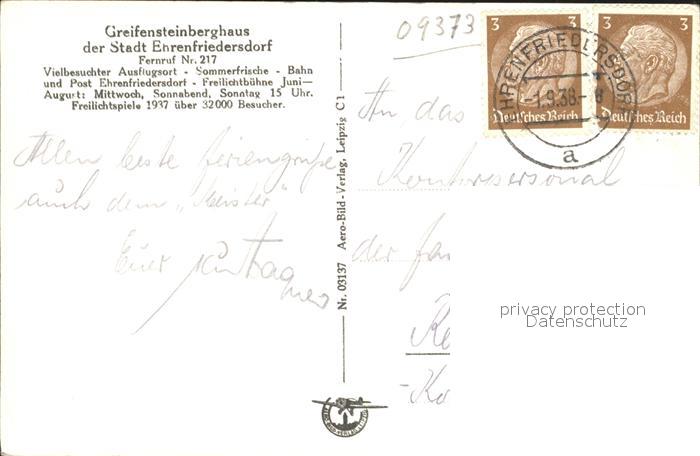 Greifensteinberghaus
der Stadt Ehrenfriedersdorf
Fernruf Nr. 217
Vielbesuchter Ausflugsort - Sommerfrische - Bahn
und Post Ehrenfriedersdorf - Freilichtbühne Juni—
August: Mittwoch, Sonnabend, Sonntag 15 Uhr.
Freilichtspiele 1937 über 32000 Besucher.
Allen beste Feriengrüße
auch dem „Meister"
Euer
Nr. 03137 Aero-Bild-Verlag, Leipzig C1
09373
3
3
Deutsches Reich
Deutsches Reich
EHRENFRIEDERSDORF
-1.8.38.-
a
An das
Kontorpersonal
der
privacy protection
Datenschutz